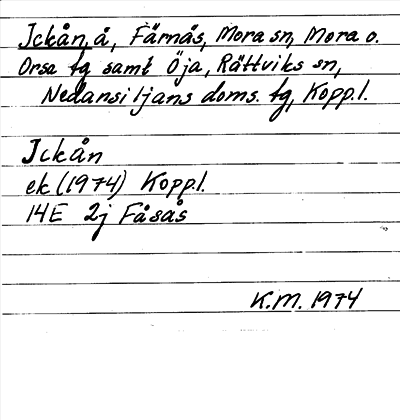 Ickån, å, Färnås, Mora sn, Mora o.
Orsa tg samt Öja, Rättviks sn,
Nedansiljans doms. tg, Kopp.l.
Ickån
ek (1974) Kopp.l.
14E 2j Fåsås
K.M. 1974